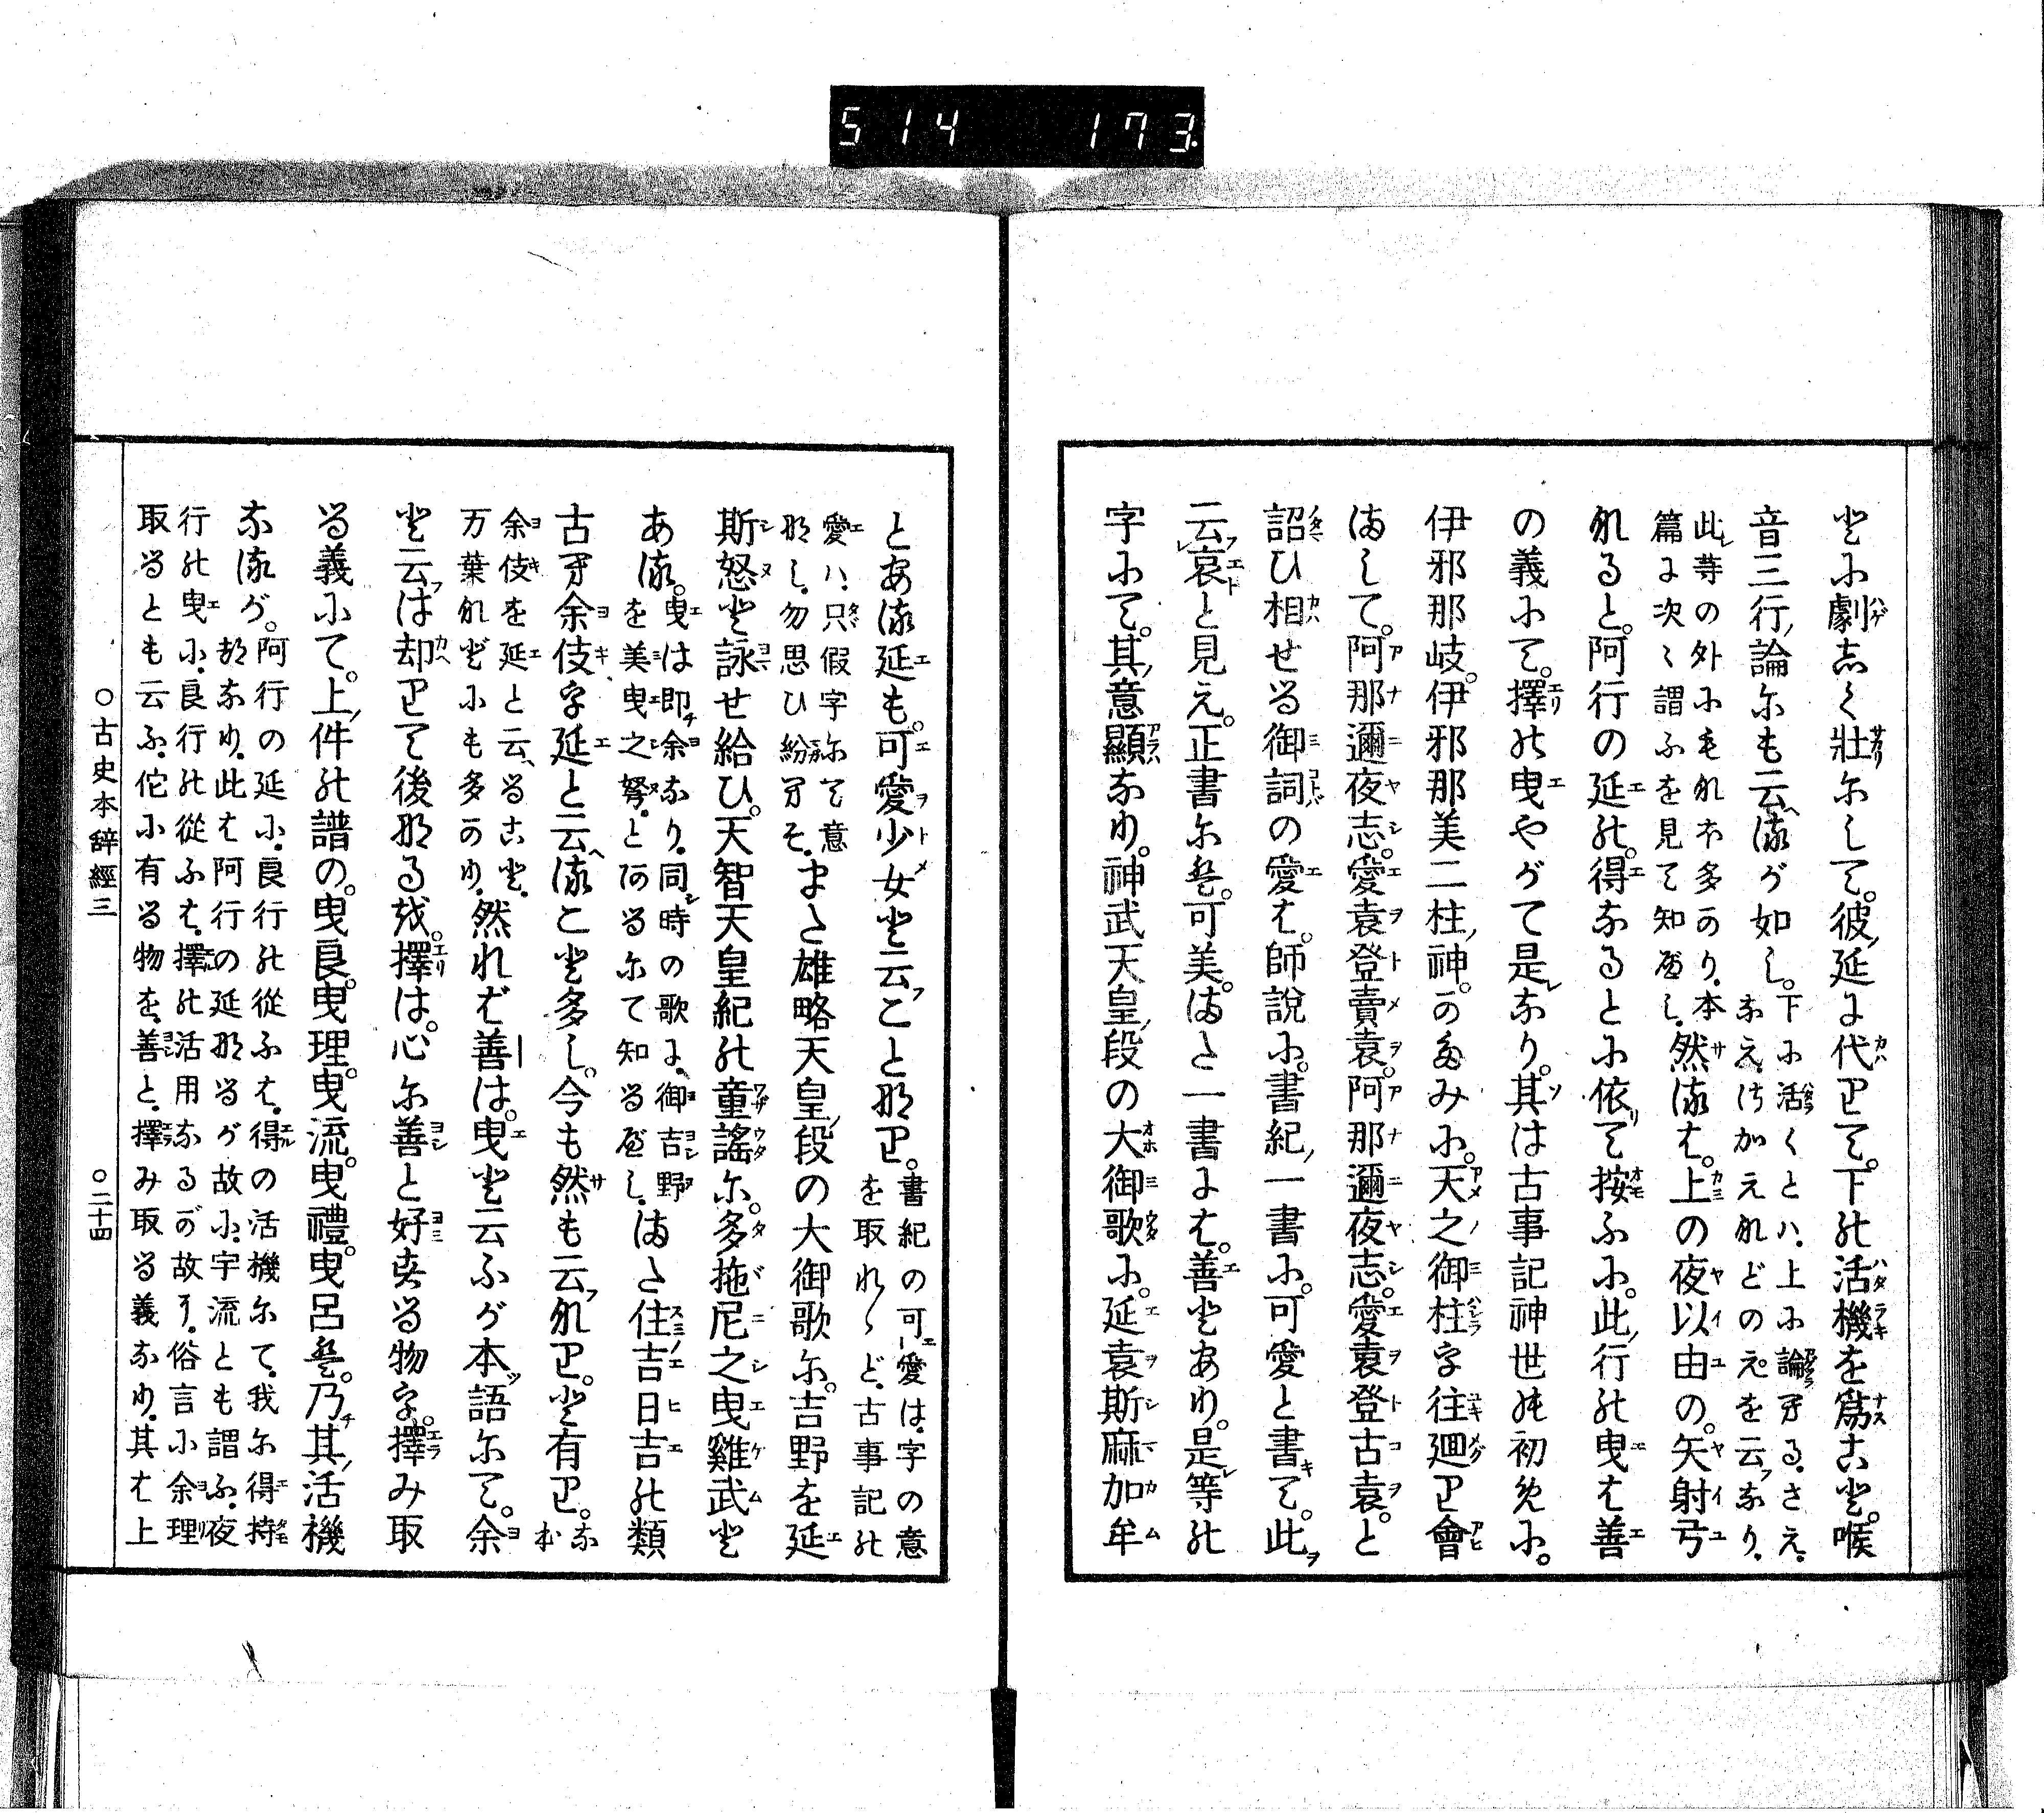 514 173.
とに劇志く壯にして。彼ノ延に代りて。下の活機を爲こと。喉
音三行ノ論にも云へるが如し。下に活くとハ、上に論する、さえ、
おえ、はかえれどのえを云フなり、
此レ等の外にもれほ多かり、本
篇に次々謂ふを見て知べし、然るは。上の夜以由の。矢射弓
なると。阿行の延の。得なるとに依て按ふに。此ノ行の曳は善
の義にて。擇の曳やがて是レなり。其は古事記神世の初めに。
伊邪那岐。伊邪那美二柱ノ神。のみに。天之御柱を往廻り會
まして。阿那邇夜志。愛袁登賣袁。阿那邇夜志。愛袁登古袁。と
詔ひ相せる御詞の愛は。師說に。書紀ノ一書に。可愛と書て。此ヲ
云レ哀と見え。正書には。可美。また一書には。善とあり。是レ等の
字にて。其ノ意顯なり。神武天皇ノ段の大御歌に。延袁斯麻加牟
とある延も。可愛少女と云フことなり。書紀の可愛は、字の意
を取れゝど、古事記の
愛ハ、只假字にて意
なし、勿思ひ紛そ、また雄略天皇ノ段の大御歌に。吉野を延
斯怒と詠せ給ひ。天智天皇紀の童謠に。多拖尼之曳雞武と
ある。曳は即チ余なり、同シ時の歌に、御吉野
を美曳之弩、とあるにて知るべし、また住吉日吉の類
古く余伎を延と云へること多し。今も然も云フなり。と有り。なほ
余伎を延と云へること、
万葉などにも多かり、然れば善は。曳と云ふが本語にて。余
と云フは却りて後なるを。擇は。心に善と好する物を。擇み取
る義にて。上ノ件の譜の。曳良。曳理。曳流。曳禮。曳呂は。乃チ其ノ活機
なるが。阿行の延に、良行の從ふは、得の活機にて、我に得持
なり、此は阿行の延なるが故に、宇流とも謂ふ、夜
行の曳に、良行の從ふは、擇の活用なるが故に、俗言に余理
取るとも云ふ、佗に有る物を、善と、擇み取る義なり、其は上
○古史本辭經三 ○二十四